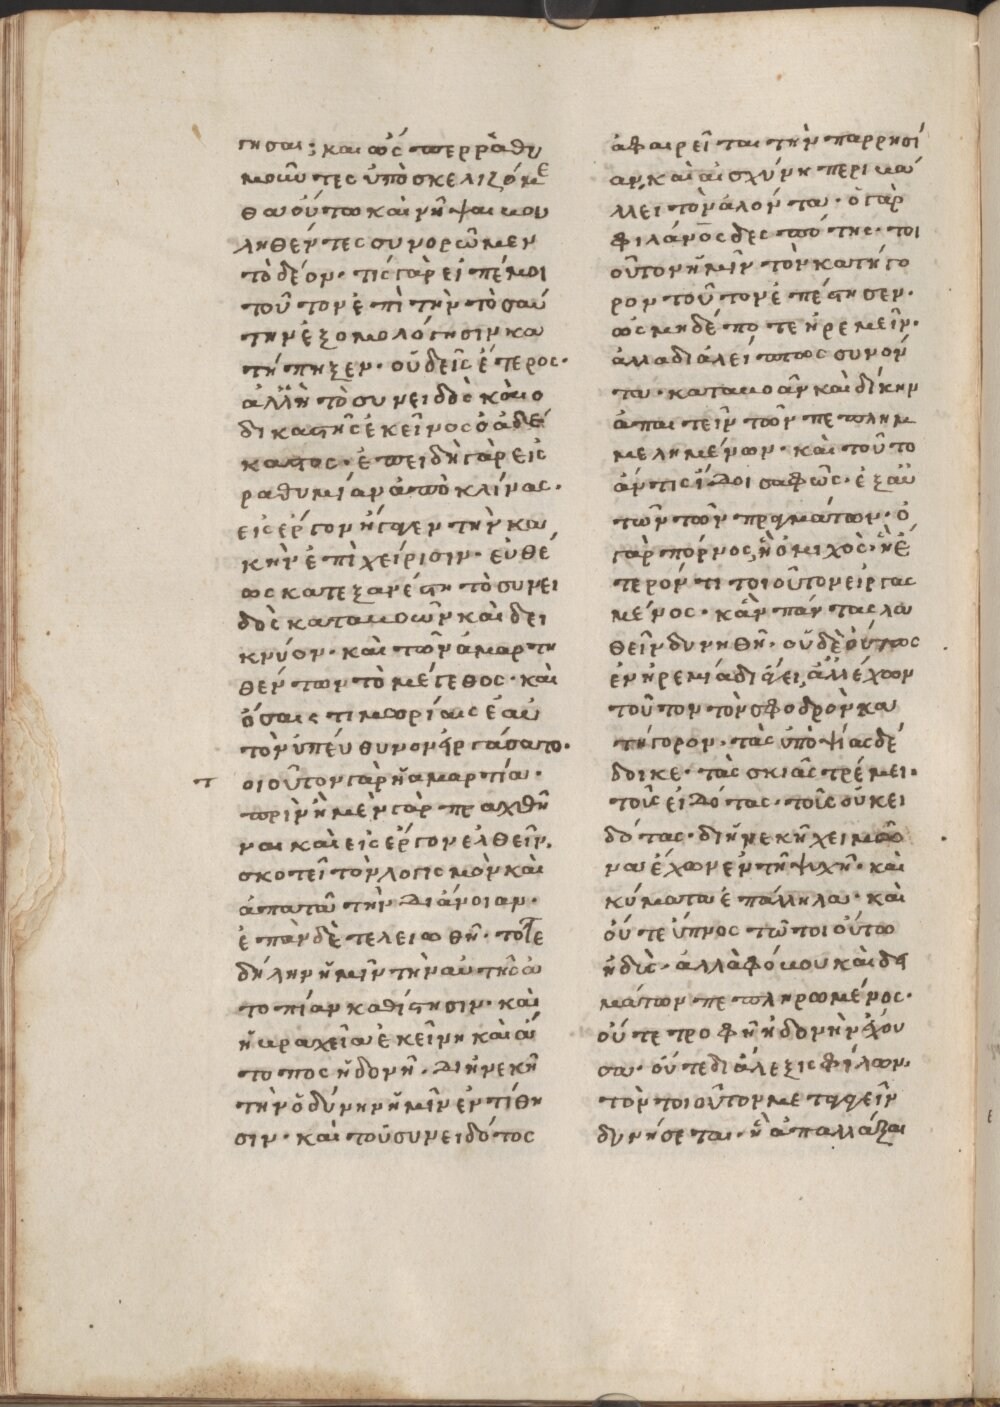 τησαι; καὶ ὥσπερ ῥαθυ
μοῦντες ὑποσκελιζόμε
θα οὕτω καὶ νῆψαι βου
ληθέντες συνορῶμεν
τὸ δέον· τίς γὰρ εἰπέ μοι
τοῦτον ἐπὶ τὴν τοσαύ
την ἐξομολόγησιν κα
τήπηξεν· οὐδεὶς ἕτερος·
ἀλλ' ἢ τὸ συνειδὸς κἀμο
δικαστὴς ἐκεῖνος ὁ ἀδέ
καστος· ἐπειδὴ γὰρ εἰς
ραθυμίαν ἀποκλίνας·
εἰς ἔργον ἤγαγεν τὴν κα
κὴν ἐπιχείρισιν· εὐθέ
ως κατεξανέστη τὸ συνει
δὸς καταβοῶν καὶ δει
κνύον· καὶ τῶν ἁμαρτη
θέντων τὸ μέγεθος· καὶ
ὅσαις τιμωρίαις ἑαυ
τὸν ὑπεύθυνον εἰργάσατο·
τ οιοῦτον γὰρ ἡ ἁμαρτία·
πρινὴ μὲν γὰρ πραχθῆ
ναι καὶ εἰς ἔργον ἐλθεῖν,
σκοτεῖ τὸν λογισμὸν καὶ
ἀπατᾶ τὴν διάνοιαν·
ἐπὰν δὲ τελειωθῆ· τότε
δήλην ἡμῖν τὴν αὐτῆς ἀ
τοπίαν καθίστησιν· καὶ
ἡ βραχεῖα ἐκείνη καὶ ἄ
τοπος ἡδονὴ· διηνεκῆ
τὴν ὀδύνην ἡμῖν ἐντίθη
σιν· καὶ τοῦ συνειδότος
ἀφαιρεῖται τὴν παρρησί
αν, καὶ αἰσχύνη περιβά
λλει τὸν ἁλόντα· ὁ γὰρ
φιλάνος δεσπότης· τοι
οῦτον ἡμῖν τὸν κατήγο
ρον τοῦτον ἐπέστησεν·
ὡς μηδέποτε ἠρεμεῖν·
ἀλλα διαλείπτως συνόν
τα· καταβοᾶν καὶ δίκην
ἀπαιτεῖν τῶν πεπλημ
μελημένων· καὶ τοῦτο
ἄν τις ἴδοι σαφῶς· ἐξ αὐ
τῶν τῶν πραγμάτων· ὁ
γὰρ πόρνος, ἢ ὁ μιχὸς· ἢ ἕ
τερόν τι τοιοῦτον εἰργας
μένος· κἂν πάντας λα
θεῖν δυνηθῆ· οὐδὲ οὕτως
ἐν ἠρεμία διάγει, ἀλλ' ἔχων
τοῦτον τὸν σφοδρὸν κα
τήγορον· τὰς ὑποψίας δέ
δοικε· τὰς σκιὰς τρέμει·
τοὺς εἰδότας· τοὺς οὐκ εἰ
δότας· διηνεκῆ χειμῶ
να ἔχων ἐν τῆ ψυχῆ· καὶ
κύματα ἐπάλληλα· καὶ
οὔτε ὕπνος τῶ τοιούτω
ἡδὺς· ἀλλὰ φόβου καὶ δει
μάτων πεπληρωμένος·
οὔτε τροφὴ ἡδονὴν ἔχου
σα· οὔτε διάλεξις φίλων·
τὸν τοιοῦτον μεταγαγεῖν
δυνήσεται· ἢ ἀπαλλάξαι